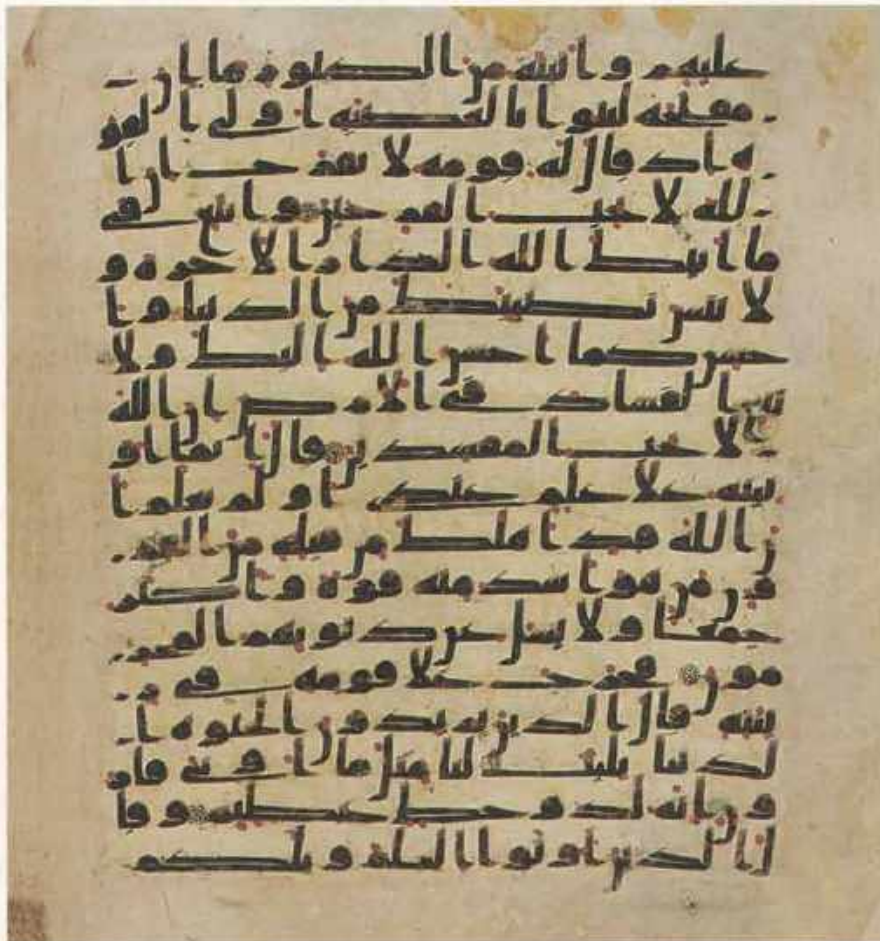 عليهم واتينه من الكنوز ما ان
مفتحه لتنوا بالعصبه اولي القو
ه اذ قال له قومه لا تفرح ان ا
لله لا يحب الفرحين وابتغ في
ما اتيك الله الدار الاخره و
لا تنس نصيبك من الدنيا وا
حسن كما احسن الله اليك ولا
تبغ الفساد في الارض ان الله
لا يحب المفسدين قال انما او
تيته علا علم عندي اولم يعلم ا
ن الله قد اهلك من قبله من القر
ون من هو اشد منه قوه واكثر
جمعا ولا يسل عن ذنوبهم المجر
مون فخرج علا قومه في ز
ينته قال الذين يريدون الحيوه ا
لدنيا يليت لنا مثل ما اوتي قار
ون انه لذو حظ عظيم وقا
ل الذين اوتوا العلم ويلكم